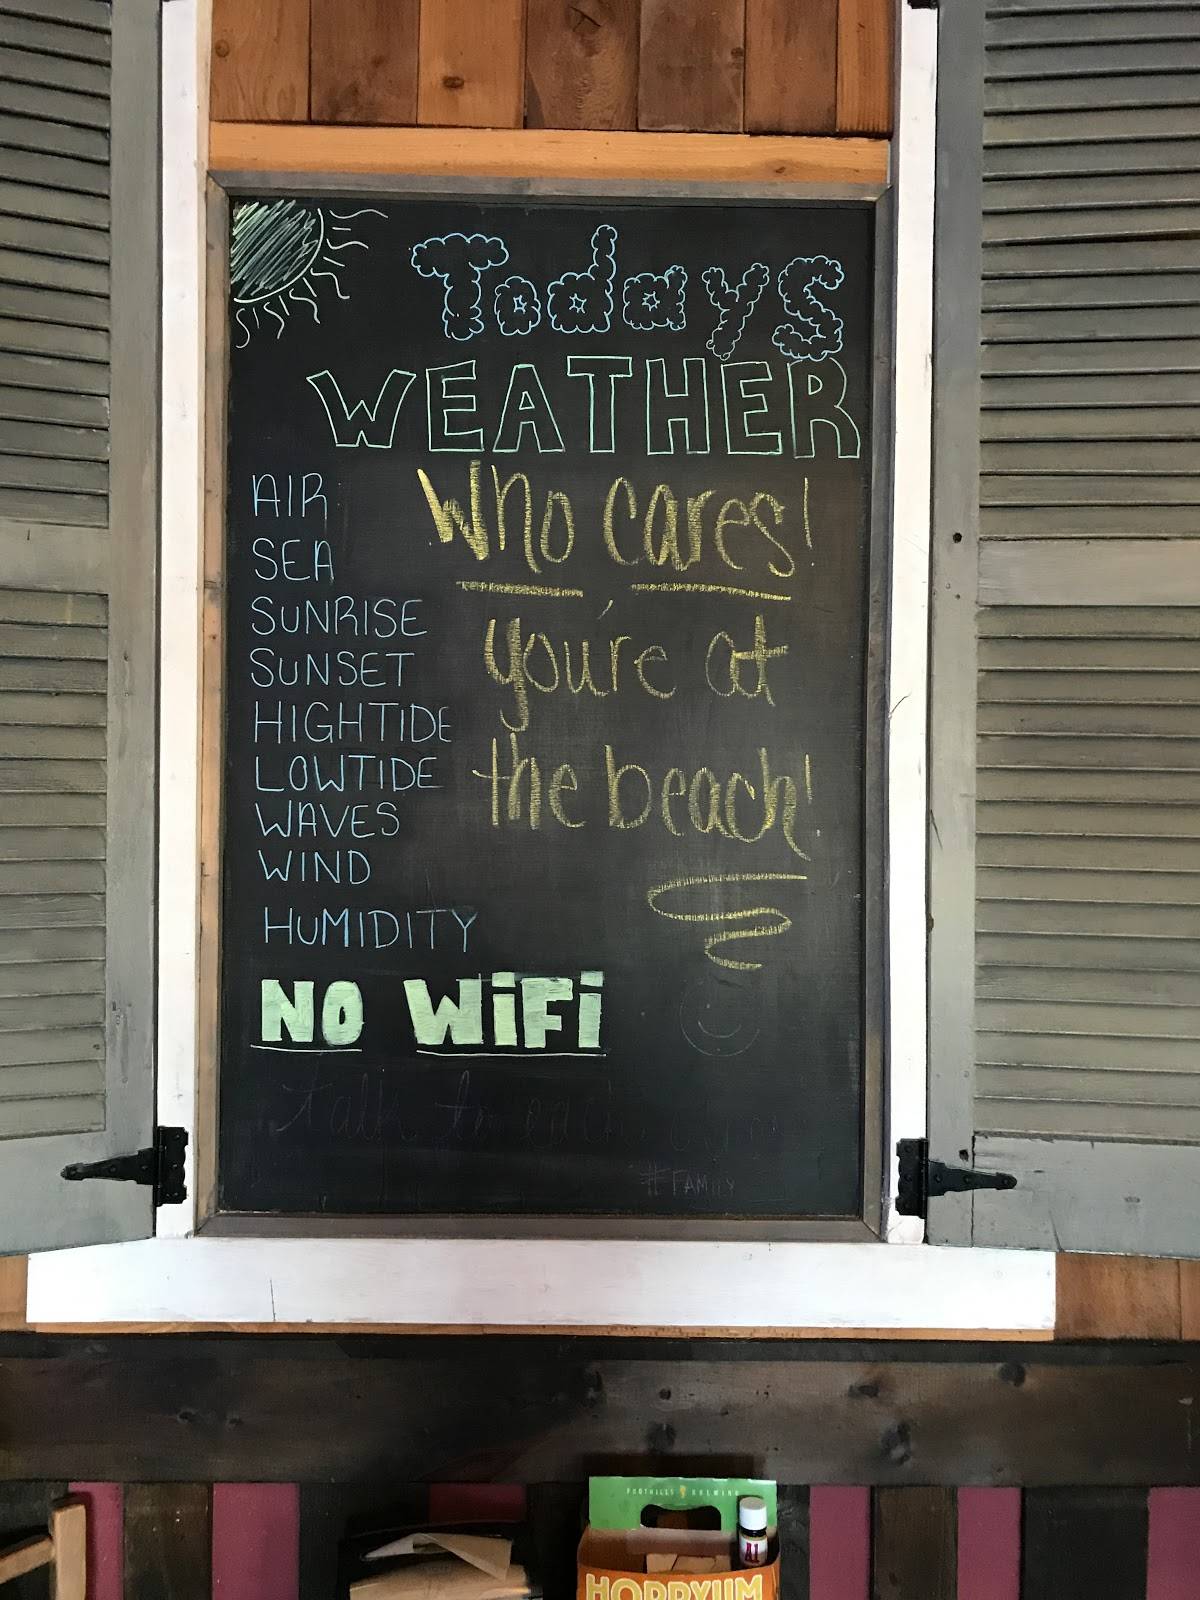 Todays
WEATHER
AIR
SEA
SUNRISE
SUNSET
HIGHTIDE
LOWTIDE
WAVES
WIND
HUMIDITY
Who cares!
you're at
the beach!
NO WiFi
talk to each
#FAMILY
FOOTHILLS BREWING
A1
HOPPYUM